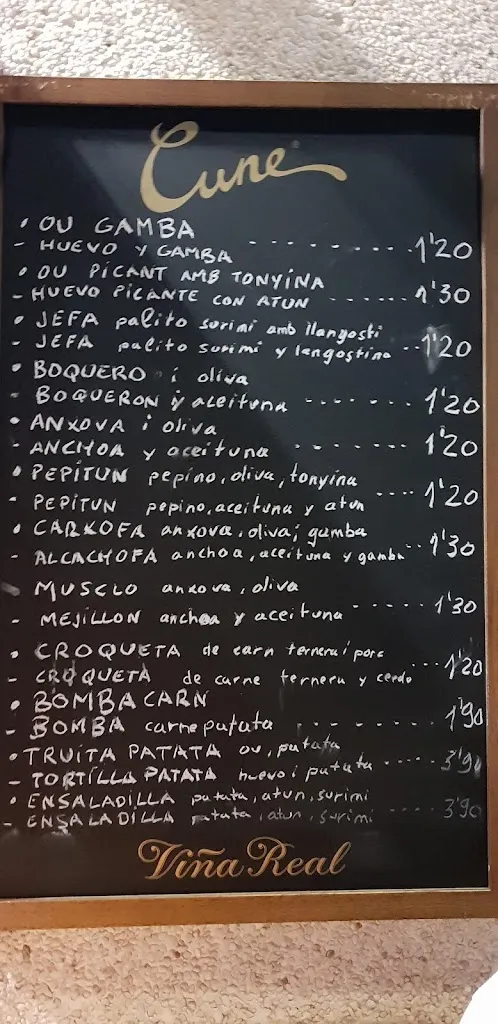 Cune
• OU GAMBA
- HUEVO Y GAMBA -------- 1'20
• OU PICANT AMB TONYINA
- HUEVO PICANTE CON ATUN ------ 1'30
• JEFA palito surimi amb llangosti
- JEFA palito surimi y langostino -- 1'20
• BOQUERO i oliva
- BOQUERON y aceituna ------ 1'20
• ANXOVA i oliva
- ANCHOA y aceituna ------ 1'20
• PEPITUN pepino, oliva, tonyina
- PEPITUN pepino, aceituna y atun ---- 1'20
• CARXOFA anxova, oliva i gamba
- ALCACHOFA anchoa, aceituna y gamba -- 1'30
MUSCLO anxova, oliva
- MEJILLON anchoa y aceituna ----- 1'30
• CROQUETA de carn ternera i porc
- CROQUETA de carne ternera y cerdo --- 1'20
• BOMBA CARN
- BOMBA carne patata -------- 1'90
• TRUITA PATATA ou, patata
- TORTILLA PATATA huevo i patata ---- 3'90
• ENSALADILLA patata, atun, surimi
- ENSALADILLA patata, atun, surimi ---- 3'90
Viña Real